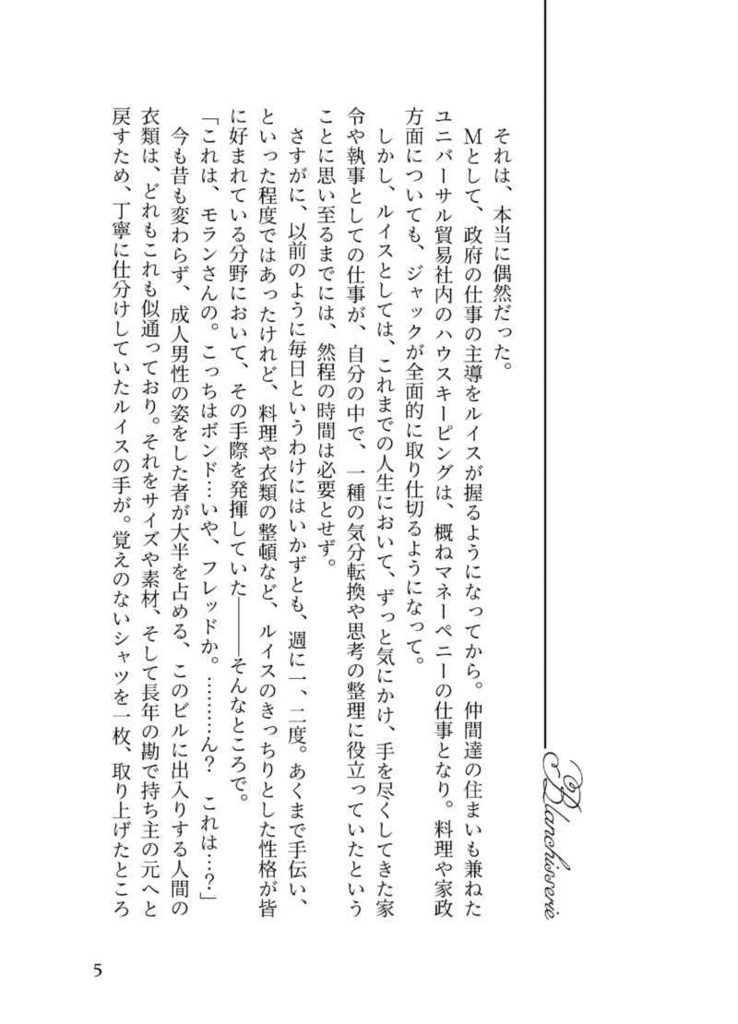 Blanchisserie
それは、本当に偶然だった。
Mとして、政府の仕事の主導をルイスが握るようになってから。仲間達の住まいも兼ねた
ユニバーサル貿易社内のハウスキーピングは、概ねマネーペニーの仕事となり。料理や家政
方面についても、ジャックが全面的に取り仕切るようになって。
しかし、ルイスとしては、これまでの人生において、ずっと気にかけ、手を尽くしてきた家
令や執事としての仕事が、自分の中で、一種の気分転換や思考の整理に役立っていたという
ことに思い至るまでには、然程の時間は必要とせず。
さすがに、以前のように毎日というわけにはいかずとも、週に一、二度。あくまで手伝い、
といった程度ではあったけれど、料理や衣類の整頓など、ルイスのきっちりとした性格が皆
に好まれている分野において、その手際を発揮していた――そんなところで。
「これは、モランさんの。こっちはボンド…いや、フレッドか。………ん？　これは…？」
今も昔も変わらず、成人男性の姿をした者が大半を占める、このビルに出入りする人間の
衣類は、どれもこれも似通っており。それをサイズや素材、そして長年の勘で持ち主の元へと
戻すため、丁寧に仕分けしていたルイスの手が。覚えのないシャツを一枚、取り上げたところ
5